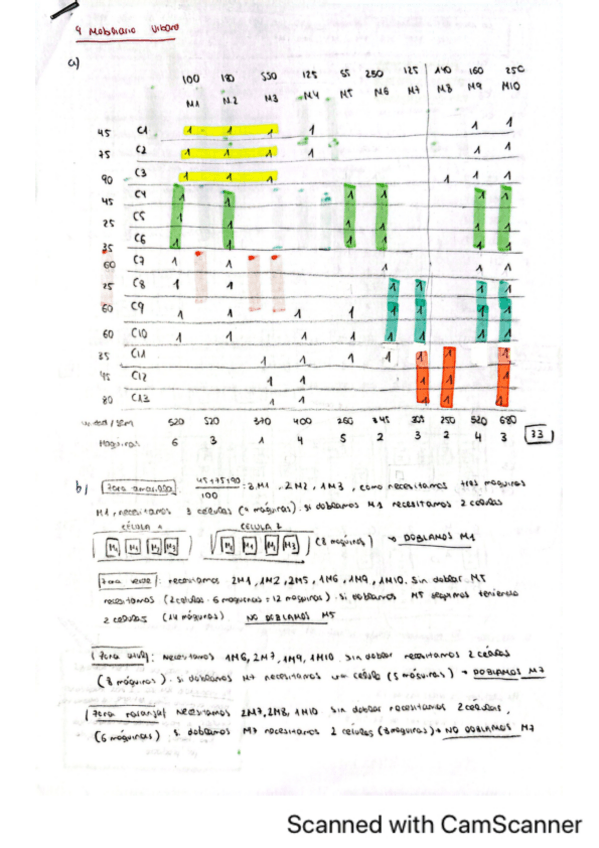 9 Mobiliario Urbano
a)
100 180 550 125 55 250 125 140 160 250
M1 M2 M3 M4 M5 M6 M7 M8 M9 M10
45 C1 1 1 1 1 1 1
75 C2 1 1 1 1 1 1
90 C3 1 1 1 1 1 1
45 C4 1 1 1 1 1 1
25 C5 1 1 1 1 1
35 C6 1 1 1 1 1 1
60 C7 1 1 1 1 1
25 C8 1 1 1 1 1 1
60 C9 1 1 1 1 1 1 1 1
60 C10 1 1 1 1 1 1 1 1
35 C11 1 1 1 1 1 1 1
45 C12 1 1 1 1
80 C13 1 1 1 1 1
520 520 370 400 260 345 250 520 680
Maquinas 6 3 1 4 5 2 3 2 4 3 33
b) Zona amarilla 45+75+90 / 100 : 3 M1, 2 M2, 1 M3, como necesitamos tres maquinas
M1, necesitamos 3 células (9 máquinas). si doblamos M1 necesitamos 2 celulas
CÉLULA 1 CÉLULA 2
M1 M1 M2 M3 M1 M1 M2 M3 (8 maquinas) → DOBLAMOS M1
Zona verde: necesitamos 2M1, 1M2, 2M5, 1M6, 1M9, 1M10. Sin doblar M5
necesitamos (2 celulas · 6 maquinas = 12 maquinas). si doblamos M5 seguimos teniendo
2 celulas (14 máquinas) NO DOBLAMOS M5
Zona azul: Necesitamos 1M6, 2M7, 1M9, 1M10. Sin doblar necesitamos 2 células
(8 máquinas). si doblamos M7 necesitamos una celula (5 máquinas) → DOBLAMOS M7
Zona naranja necesitamos 2M7, 2M8, 1M10 sin doblar necesitamos 2 celulas,
(6 máquinas) si doblamos M7 necesitamos 2 células (8 maquinas) → NO DOBLAMOS M7
Scanned with CamScanner